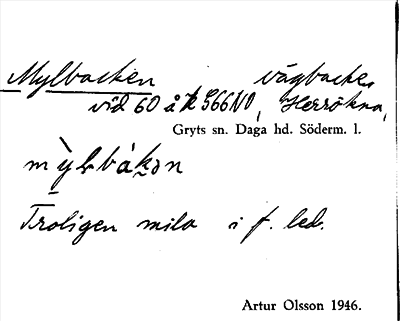 Mylbacken vägbacke
vid 60 å k S66NO, Herrökna,
Gryts sn. Daga hd. Söderm. l.
mỳlbákən
Troligen mila i f. led.
Artur Olsson 1946.